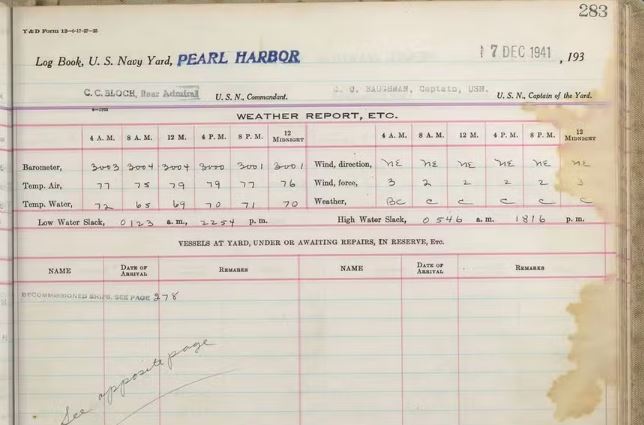 283
Y&D Form 13—6-17-27—25
Log Book, U. S. Navy Yard, PEARL HARBOR 17 DEC 1941 , 193
C. C. BLOCH, Rear Admiral U. S. N., Commandant. Captain, USN. U. S. N., Captain of the Yard.
WEATHER REPORT, ETC.
4 A. M. 8 A. M. 12 M. 4 P. M. 8 P. M. 12 MIDNIGHT 4 A. M. 8 A. M. 12 M. 4 P. M. 8 P. M. 12 MIDNIGHT
Barometer, 3003 3004 3004 3000 3001 3001 Wind, direction, NE NE NE NE NE NE
Temp. Air, 77 75 79 79 77 76 Wind, force, 3 2 2 2 2
Temp. Water, 72 65 69 70 71 70 Weather, BC C C C C C
Low Water Slack, 0123 a. m., 2254 p. m. High Water Slack, 0546 a. m. 1816 p. m.
VESSELS AT YARD, UNDER OR AWAITING REPAIRS, IN RESERVE, Etc.
NAME DATE OF ARRIVAL REMARKS NAME DATE OF ARRIVAL REMARKS
DECOMMISSIONED SHIPS, SEE PAGE 278
See opposite page